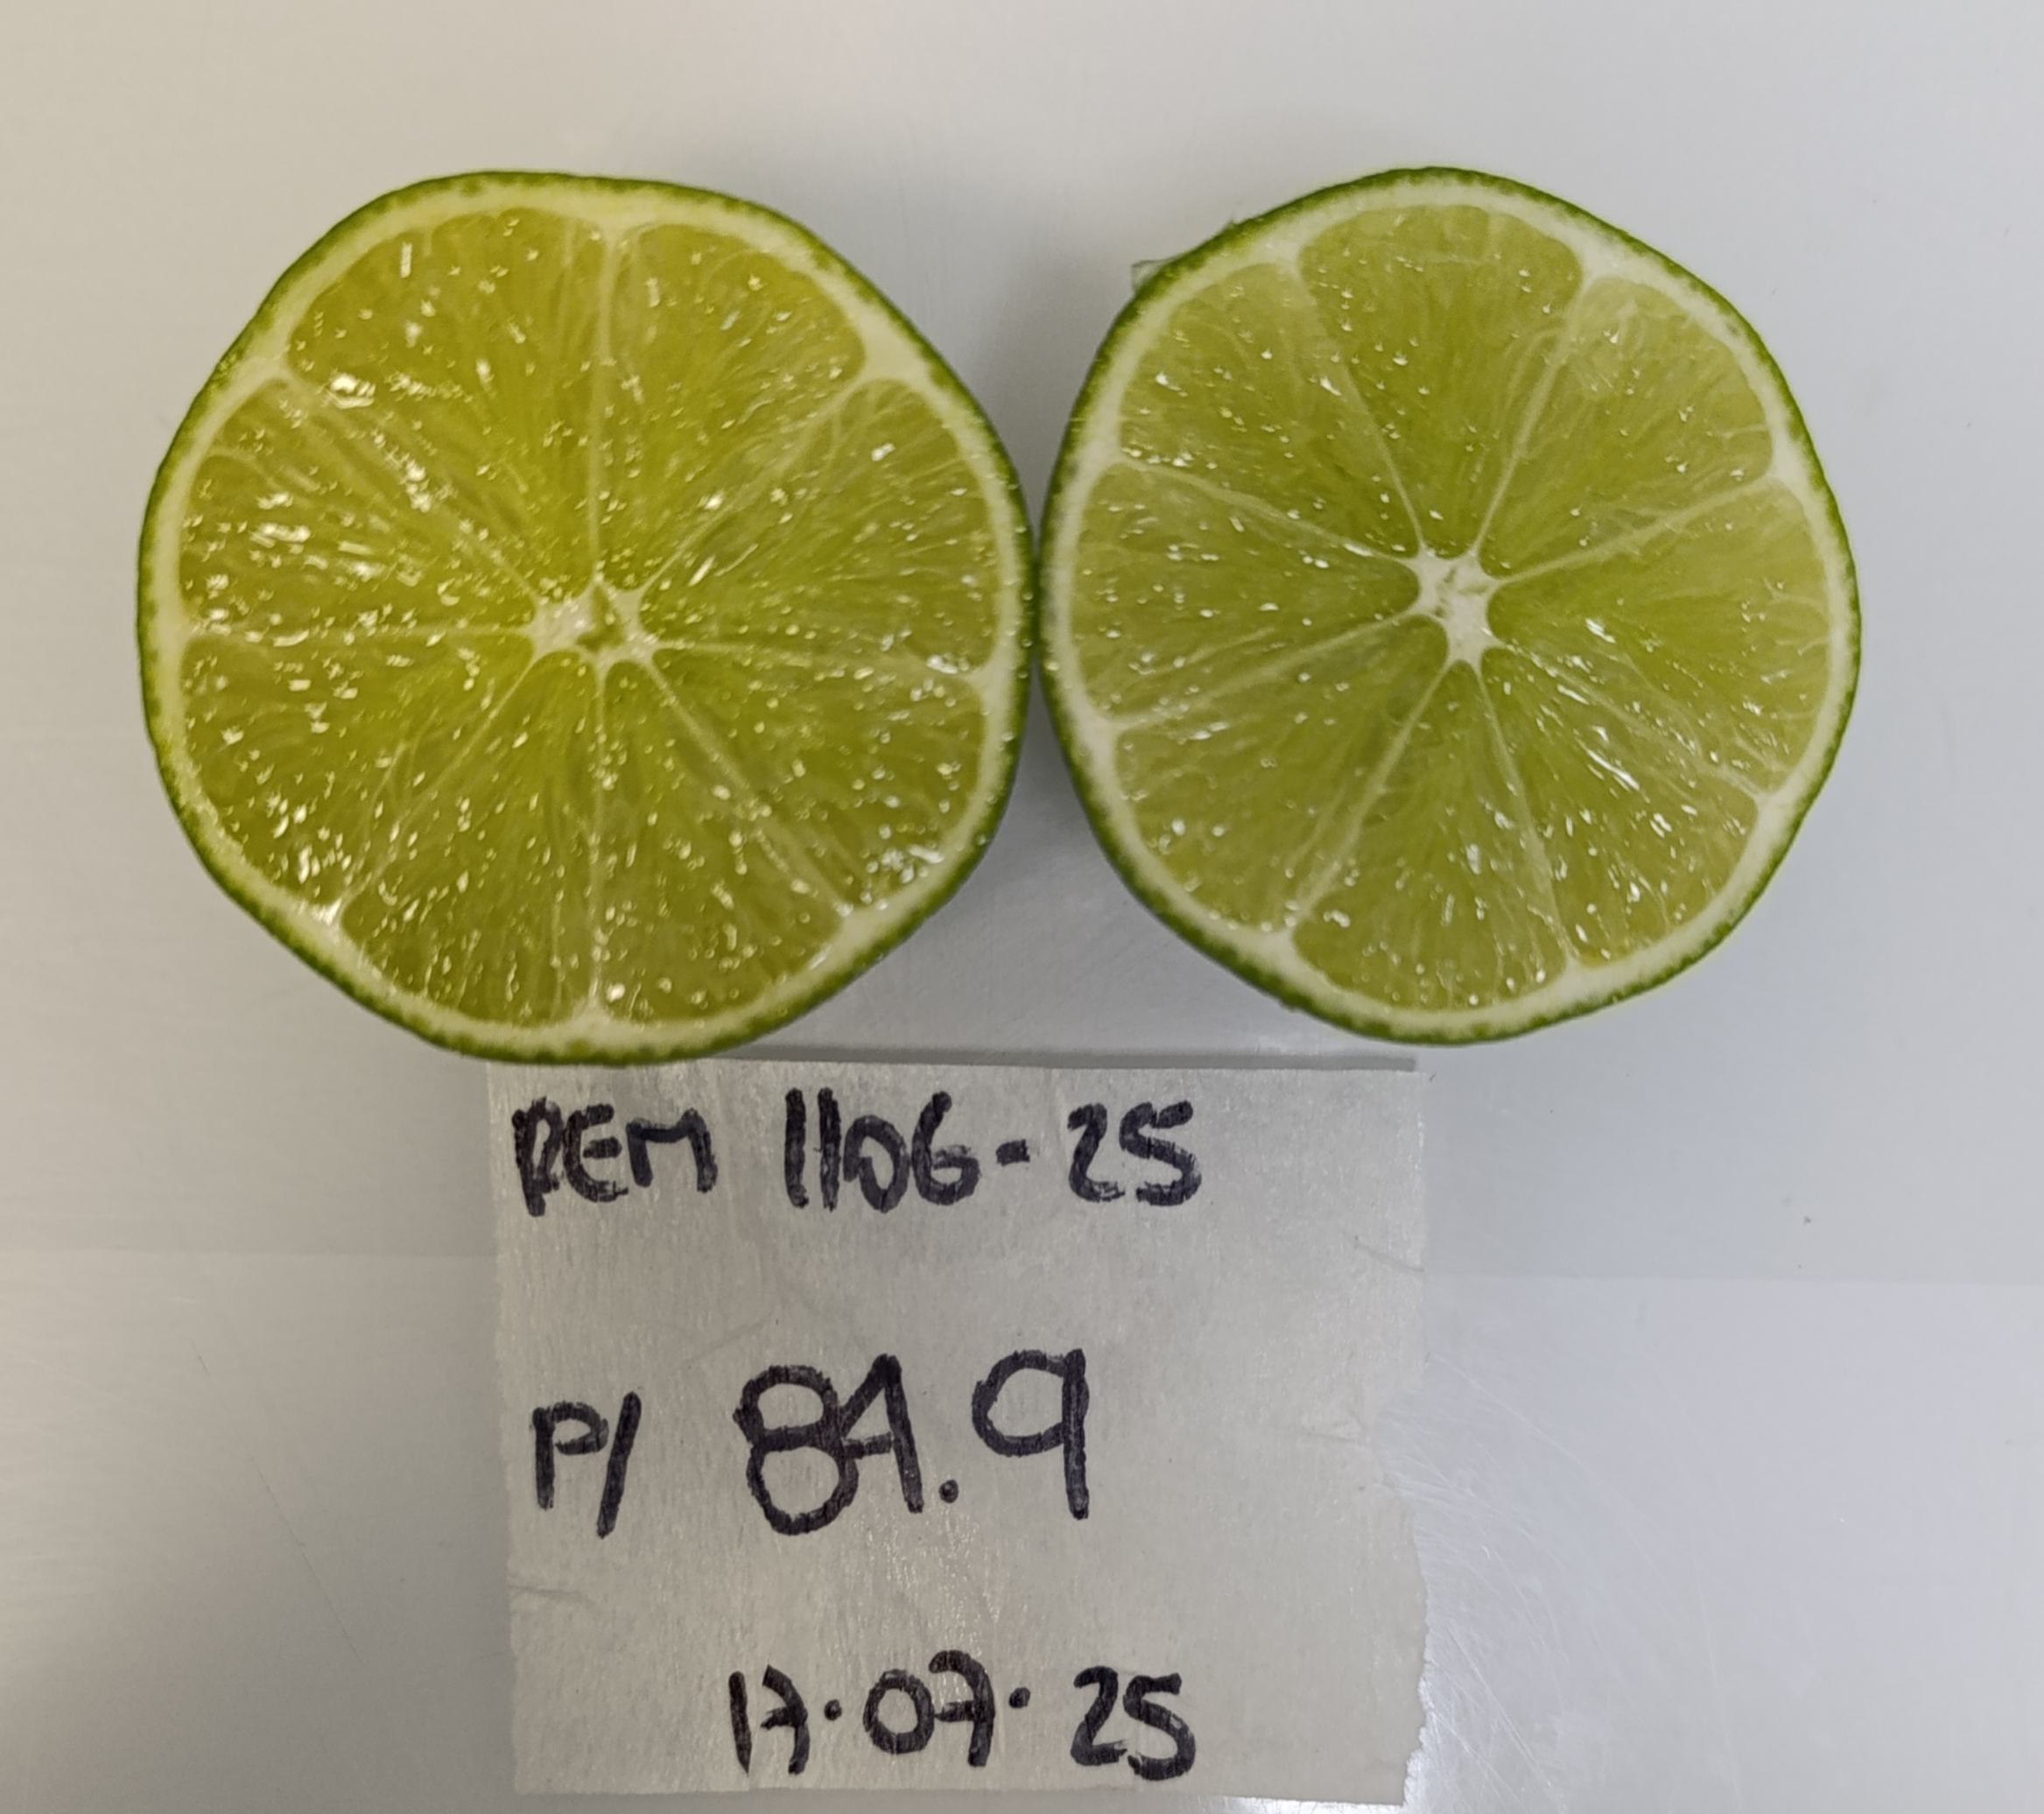 REM 1106-25
P/ 84.9
17.07.25